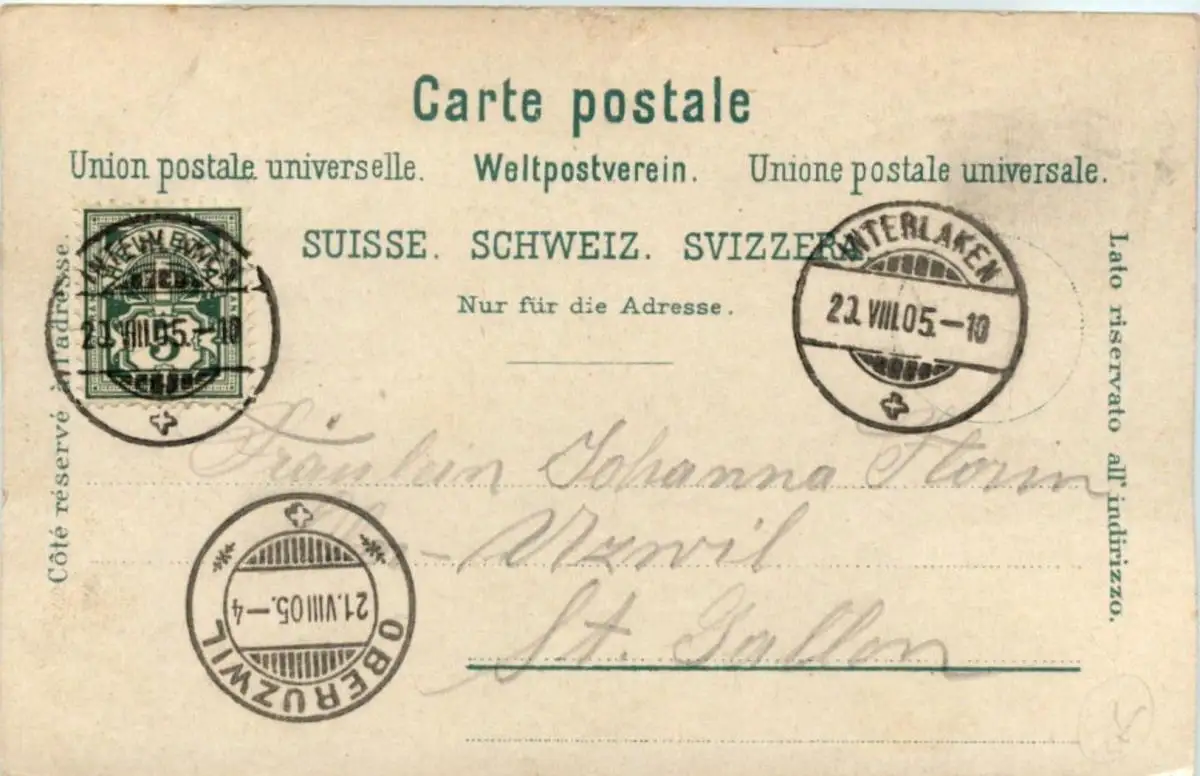 Carte postale
Union postale universelle. Weltpostverein. Unione postale universale.
SUISSE. SCHWEIZ. SVIZZERA.
Nur für die Adresse.
Côté réservé à l'adresse.
Lato riservato all'indirizzo.
INTERLAKEN
20.VIII.05.-10
5
INTERLAKEN
20.VIII.05.-10
Fräulein Johanna Storm
Uzwil
St. Gallen
OBERUZWIL
21.VIII05.-4